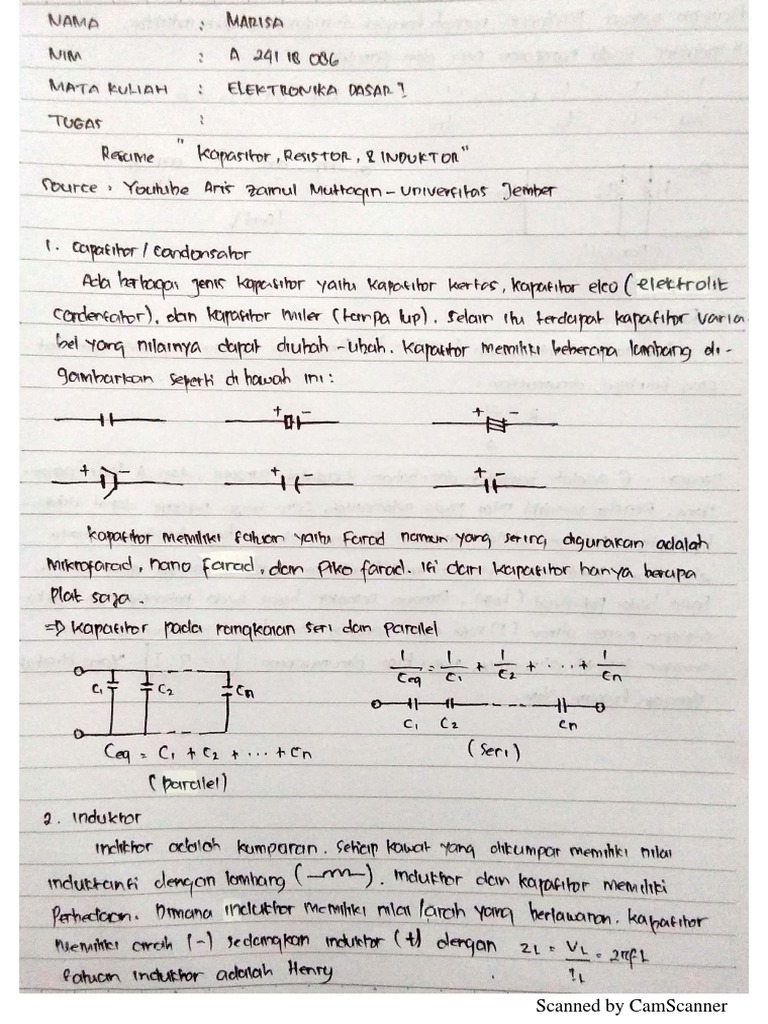 NAMA : MARISA
NIM : A 241 18 086
MATA KULIAH : ELEKTRONIKA DASAR 1
TUGAS :
Resume "Kapasitor, RESISTOR, & INDUKTOR"
Source : Youtube Aris Zamul Muttaqin - Universitas Jember
1. Capasitor / Condonsator
Ada berbagai jenis kapasitor yaitu kapasitor kertas, kapasitor elco (elektrolit
Cordensator), dan kapasitor miler (tanpa lup). Selain itu terdapat kapasitor varia
bel yang nilainya dapat diubah-ubah. Kapasitor memiliki beberapa lambang di-
gambarkan seperti di bawah ini :
+ -
+ -
+ -
+ -
+ -
Kapasitor memiliki satuan yaitu Farad namun yang sering digunakan adalah
Mikrofarad, nano farad, dan Piko farad. Isi dari kapasitor hanya berupa
Plat saja.
=> Kapasitor pada rangkaian seri dan parallel
1/Ceq = 1/C1 + 1/C2 + ... + 1/Cn
C1 C2 Cn
C1 C2 Cn
Ceq = C1 + C2 + ... + Cn
(Seri)
(parallel)
2. Induktor
Induktor adalah kumparan. Setiap kawat yang dikumpar memiliki nilai
induktansi dengan lambang ( ). Induktor dan kapasitor memiliki
Perbedaan. Dimana induktor memiliki nilai / arah yang berlawanan. Kapasitor
Memiliki arah (-) sedangkan induktor (+) dengan ZL = VL/IL = 2πfL
Satuan induktor adalah Henry
Scanned by CamScanner